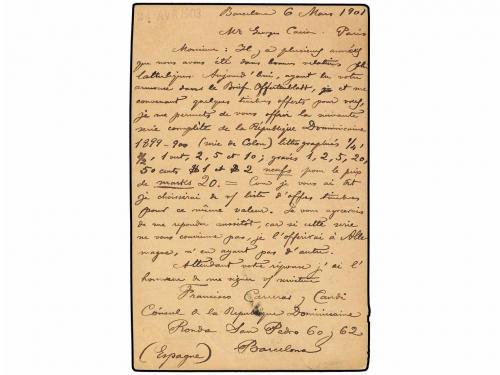 Barcelone 6 Mars 1901
Mr Georges Carion - Paris
Monsieur: Il y a plusieurs années
que nous avons été dans bonnes relations
Aujourd'hui, ayant lu votre
annonce dans le Brief Offertenblatt, je et me
convenant quelques timbres offerts pour vous,
je me permets de vous offrir la suivante
serie complète de la République Dominicaine
1899-900 (serie de Colon) lithographiés 1/4,
1/2, 1 cent, 2, 5 et 10; gravés 1, 2, 5, 20,
50 cents $1 et $2 neufs pour le prix
de marks 20. = Como je vous ai dit
je choisirai de v/ liste d'offres timbres
pour ce même valeur. Je vous agrecerais
de me repondre aussitôt, car si cette serie
ne vous convienne pas, je l'offrirai à Alle
magne, n'en ayant pas d'autre.
Attendant votre réponse j'ai l'
honneur de me signer v/ serviteur
Francisco Carreras y Candi
Cónsul de la Republique Dominicaine
Ronda San Pedro 60 y 62
(Espagne) Barcelona